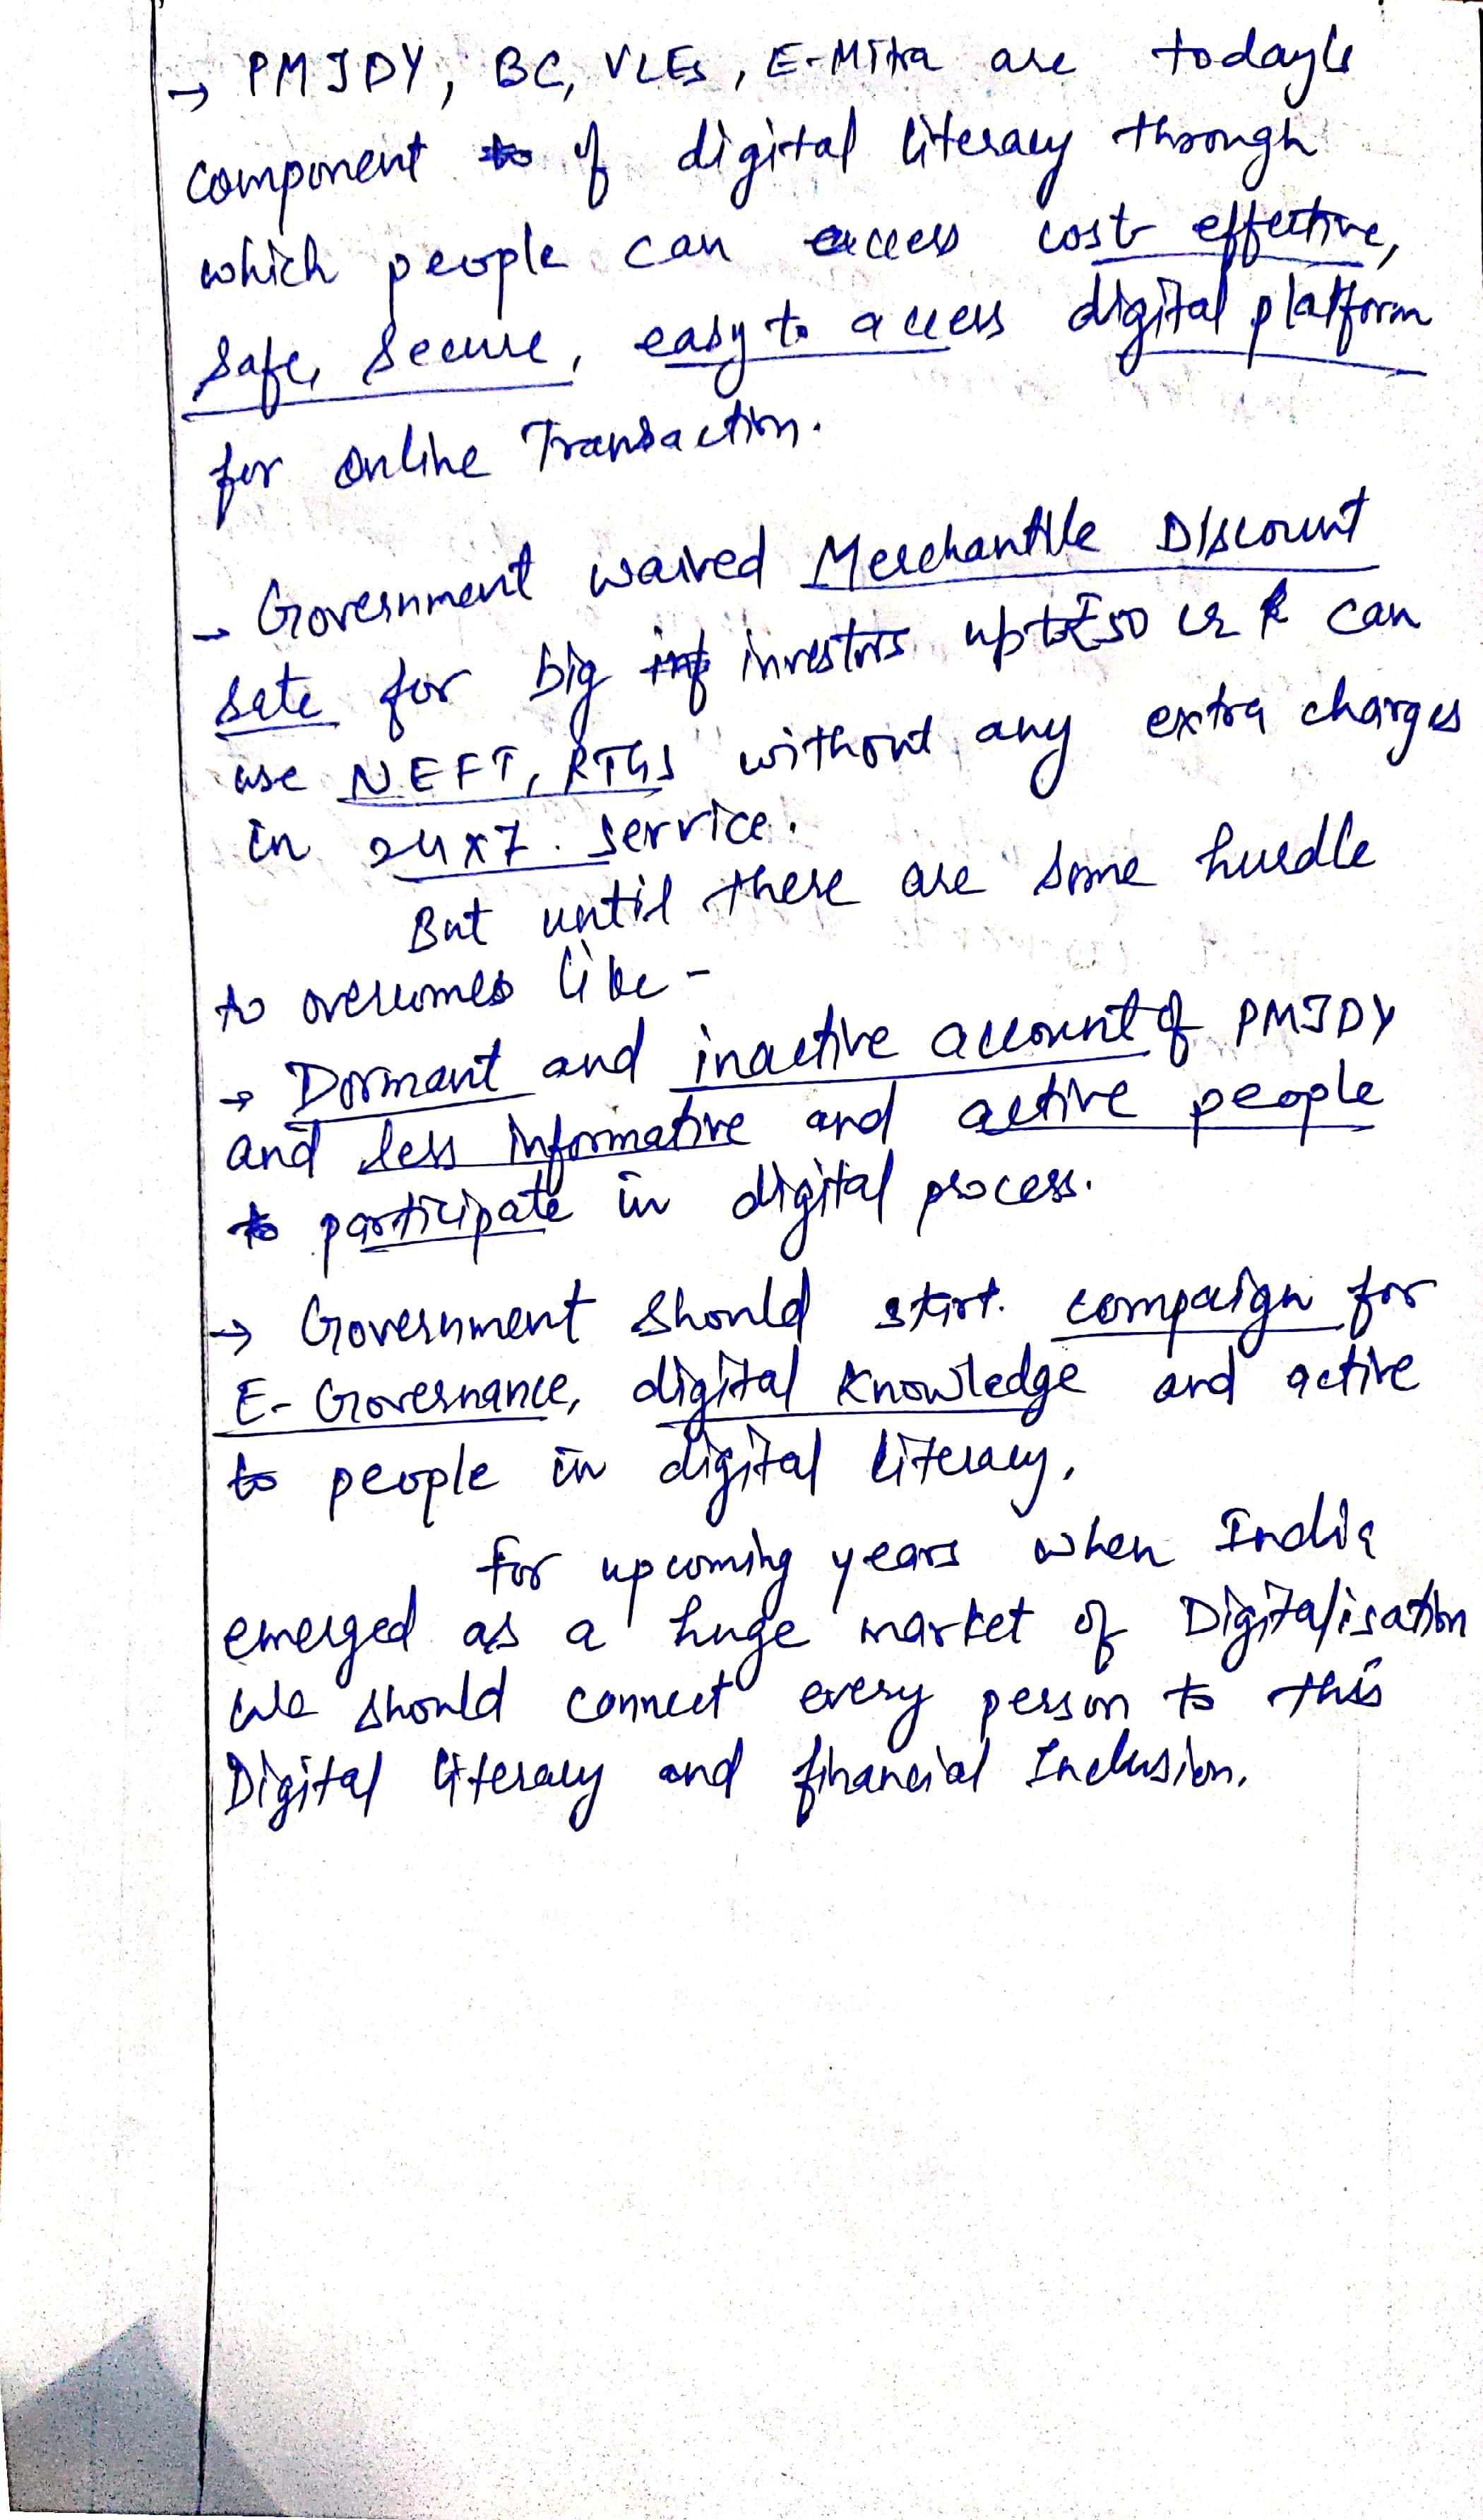 → PMJDY, BC, VLEs, E-Mitra are today's
component of digital literacy through
which people can access cost effective,
safe, secure, easy to access digital platform
for online Transaction.
→ Government waived Merchantile Discount
rate for big investors upto ₹50 cr & can
use NEFT, RTGS without any extra charges
in 24x7. service.
But until there are some hurdle
to overcomes like -
→ Dormant and inactive account of PMJDY
and less informative and active people
to participate in digital process.
→ Government should start. compaign for
E-Governance, digital knowledge and active
to people in digital literacy,
For upcoming years when India
emerged as a huge market of Digitalisation
We should connect every person to this
Digital literacy and financial Inclusion.